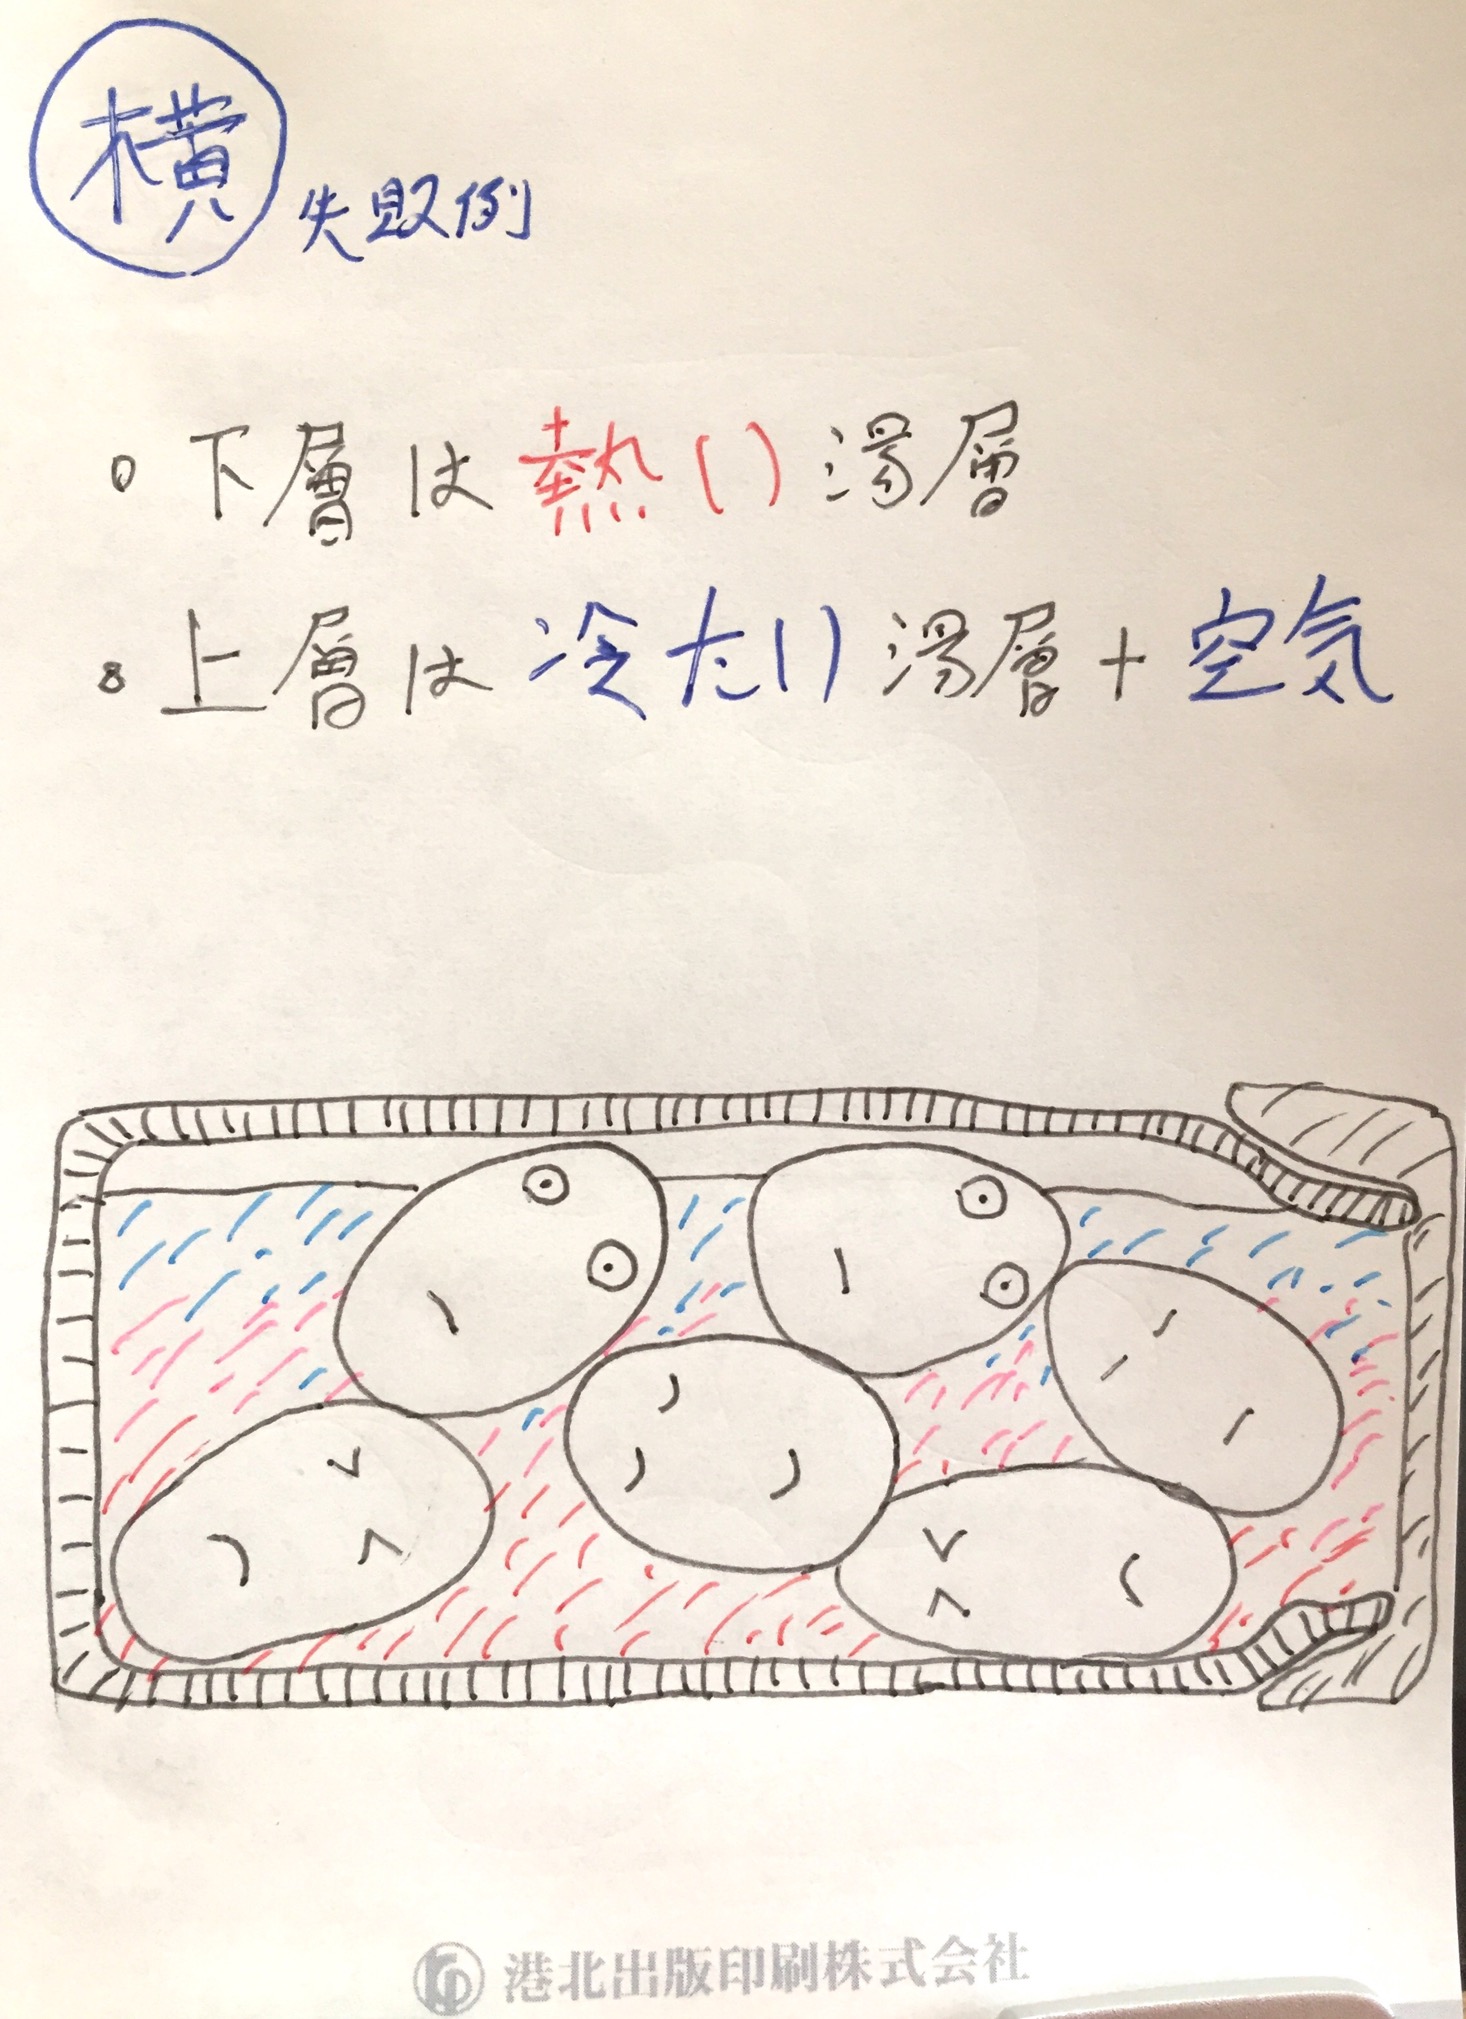 横 失敗例
○下層は熱い湯層
○上層は冷たい湯層+空気
港北出版印刷株式会社